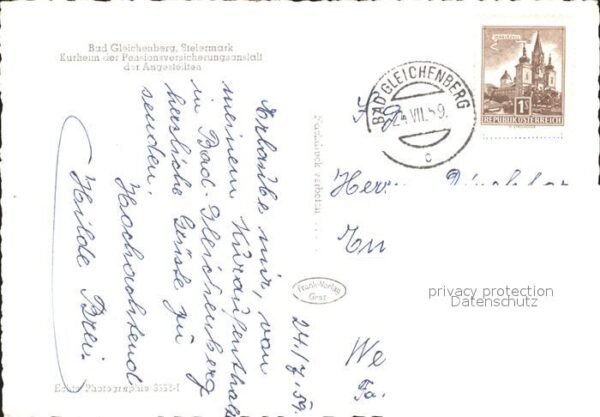 Bad Gleichenberg, Steiermark
Kurheim der Pensionsversicherungsanstalt
der Angestellten
Erlaube mir, von
meinem Kuraufenthalt
in Bad-Gleichenberg
herzliche Grüße zu
senden.
Hochachtend
Hilde Brei.
24./7.59.
Echte Photographie
Nachdruck verboten
Frank-Verlag
Graz
BAD GLEICHENBERG
24.VII.59.
c
MARIAZELL
1S
REPUBLIK ÖSTERREICH
Herrn
We
Fa.
privacy protection
Datenschutz